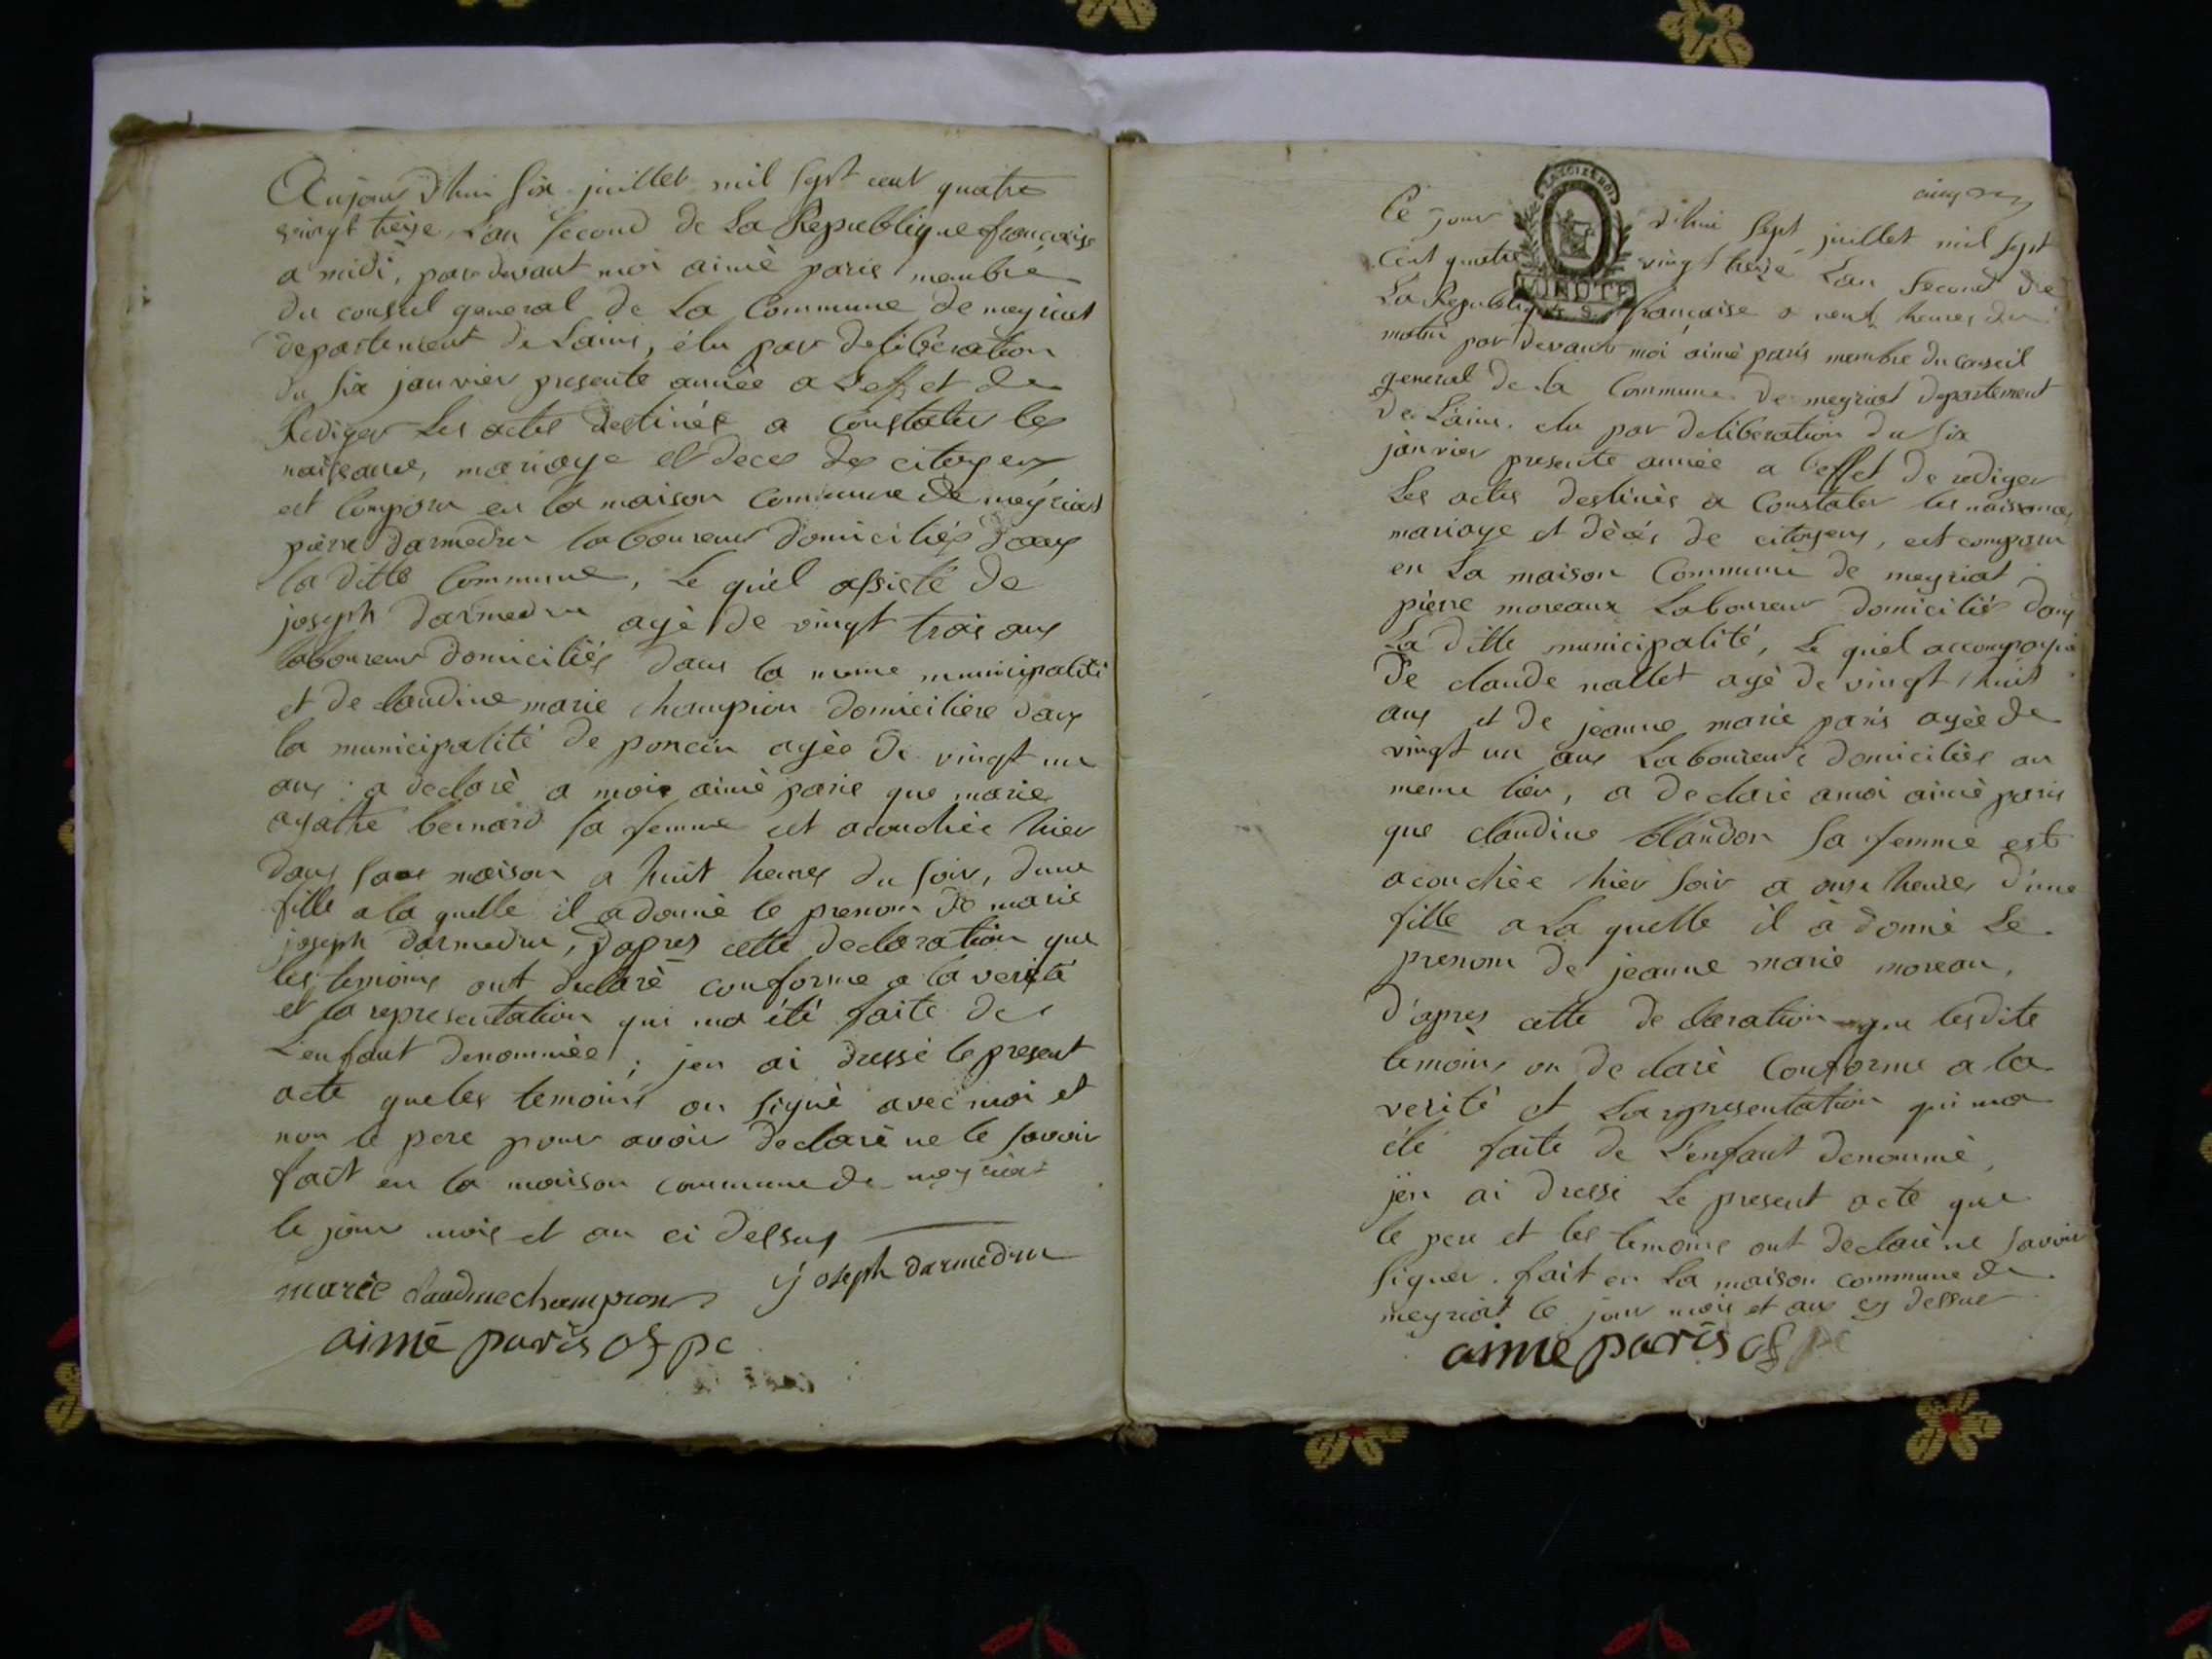 Aujour d'hui six juillet mil sept cent quatre
vingt treize, L'an second de La Republique francaise
a midi, par devant moi aimé paris membre
du conseil general de La Commune de meyriat
departement de Lains, élu par deliberation
du six janvier presente année a Leffet de
Rediger Les actes destinés a Constater les
naissance, mariage et deces des citoyens
est Comparu en la maison Commune de meyriat
pierre darmedru laboureur domiciliés dans
la ditte Commune, Le quel assisté de
joseph darmedru agé de vingt trois ans
laboureur domiciliés dans la meme municipalité
et de Claudine marie champion domiciliere dans
la municipalité de poncin agée de vingt un
ans : a declaré a moi aimé paris que marie
agathe bernard sa femme est acouchée hier
dans sa maison a huit heures du soir, dune
fille a la quelle il a donné le prenom de marie
joseph darmedru, d'apres cette declaration que
les temoins ont declaré conforme a la verité
et la representation qui ma été faite de
L'enfant denommée ; jen ai dressé le present
acte que les temoins on signé avec moi et
non le pere pour avoir declaré ne le savoir
fait en la maison commune de meyriat
le jour mois et an ci dessus
marie claudine champion joseph darmedru
aimé paris of pc
Ce jour d'hui sept juillet mil sept
Cent quatre vingt treize Lan second de
La Republique francaise a neuf heures du
MINUTE
matin par devant moi aimé paris membre du conseil
general de la Commune de meyriat departement
de L'ains. elu par deliberation du six
janvier presente année a l'effet de rediger
Les actes destinés a Constater les naissances
mariage et décés de citoyens, est comparu
en La maison Commune de meyriat
pierre moreaux Laboureur domiciliés dans
La ditte municipalité, Le quel accompagné
de claude nallet agé de vingt huit
ans et de jeanne marie paris agée de
vingt un ans Laboureurs domiciliés au
meme lieu, a declaré a moi aimé paris
que claudine blandon sa femme est
acouchée hier soir a onze heures d'une
fille a La quelle il à donné Le
prenom de jeanne marie moreau,
d'apres cette declaration que lesdits
temoins on declaré Conforme a la
verité et La representation qui ma
été faite de L'enfant denommé,
jen ai dressé Le present acte que
le pere et les temoins ont declaré ne savoir
signer. fait en La maison commune de
meyriat le jour mois et an cy dessus
aimé paris of pc